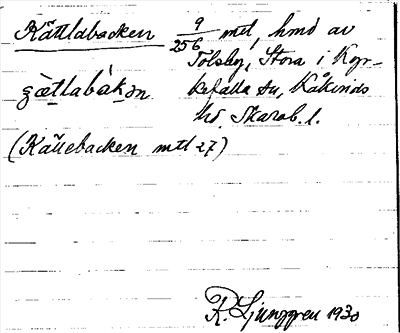 Kättlabacken 9/256 mtl, hmd av
Tolsby, Stora i Kyr-
kefalla sn, Kåkinds
hd. Skarab. l.
(Källebacken mtl 27)
R. Ljunggren 1930